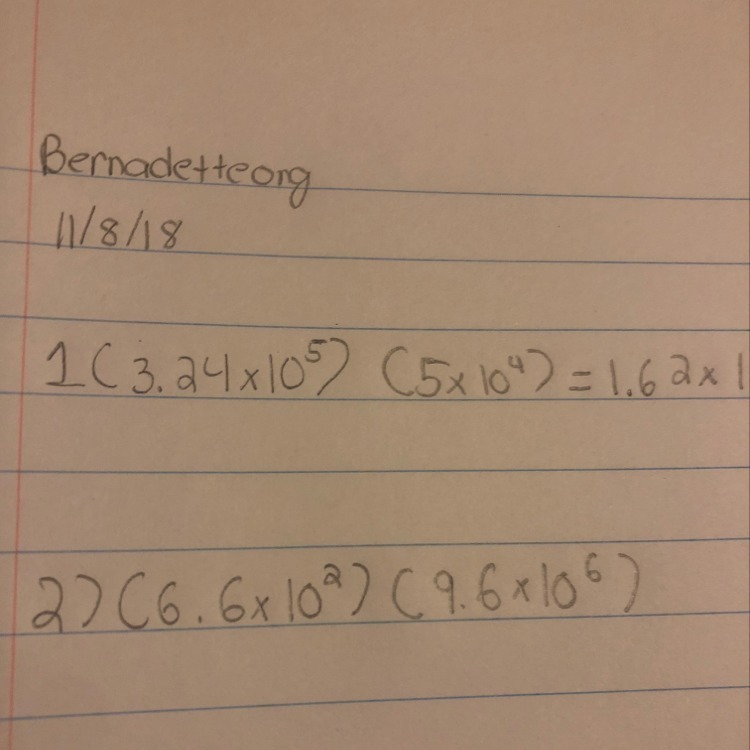 Bernadetteong
11/8/18
1(3.24x10⁵) (5x10⁴) = 1.62x1
2)(6.6x10²)(9.6x10⁶)